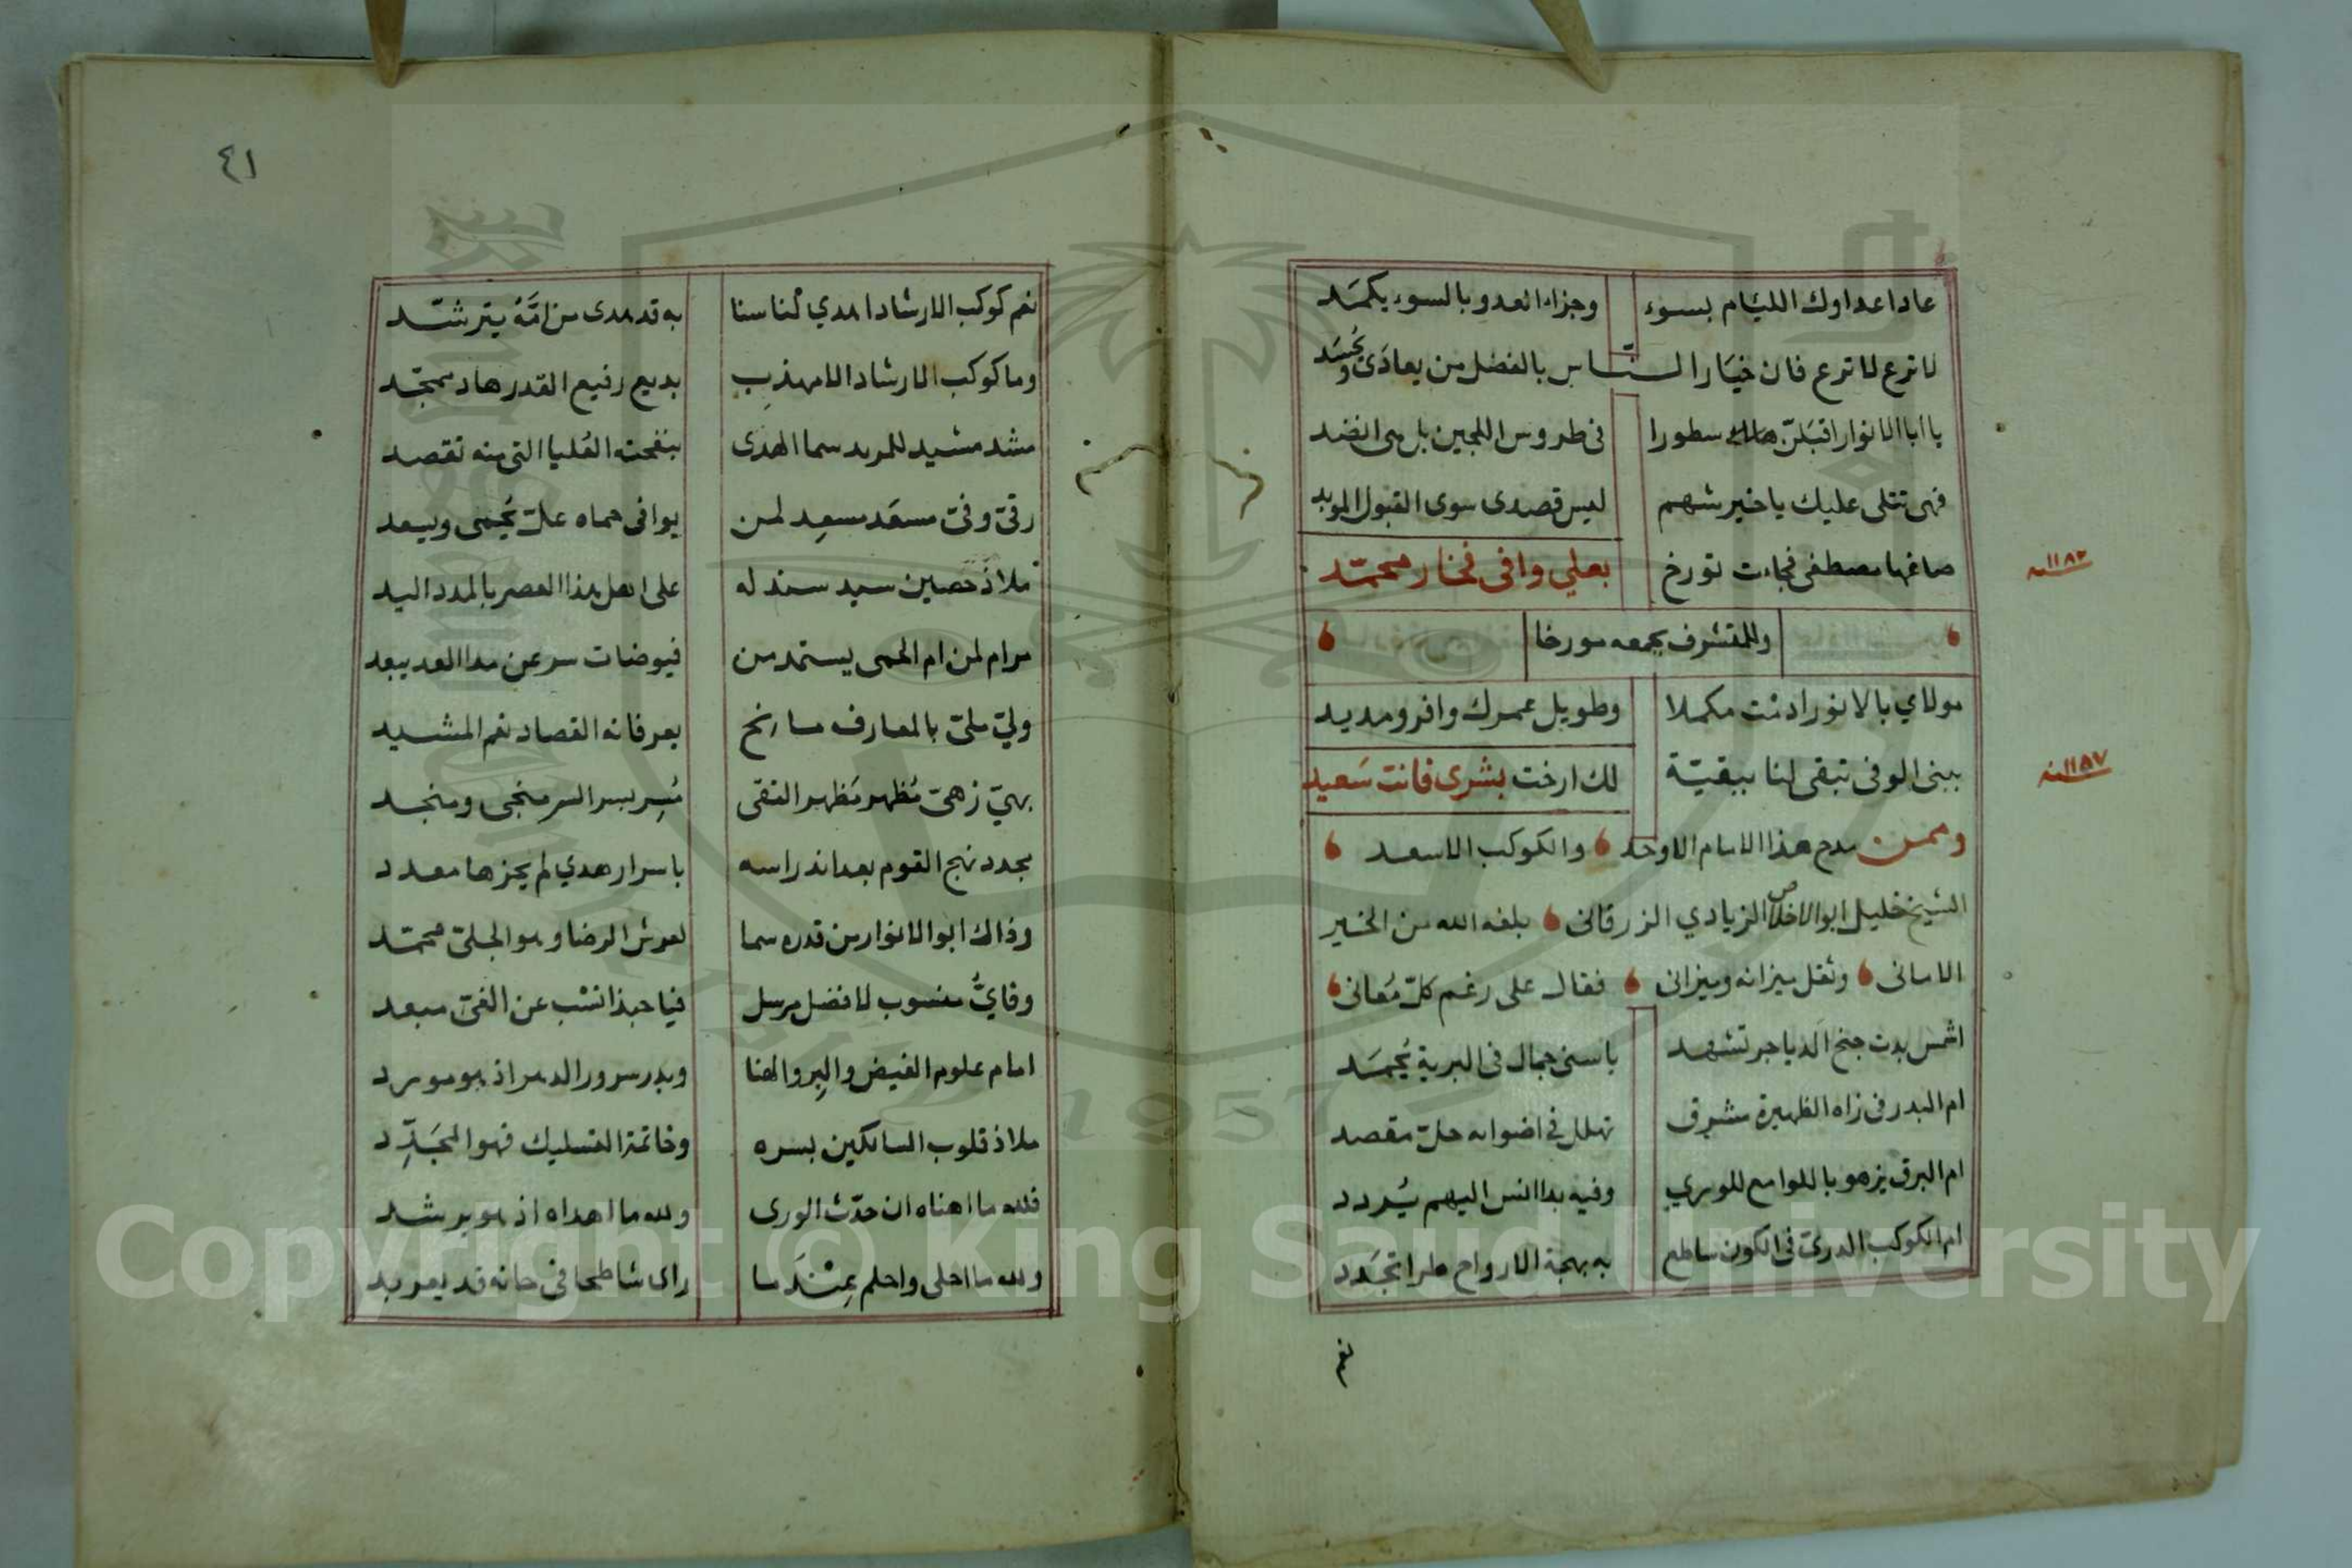 عادا عداوك الليام بسوء وجزاء العدو بالسوء يكمد
لا ترع لا ترع فان خيار الناس بالفضل من يعادى ويحسد
يا ابا الانوار اقبلن هاك سطورا فى طروس اللجين بل هى انضد
فهى تتلى عليك يا خير شهم ليس قصدى سوى القبول المويد
صاغها مصطفى فجاءت تورخ بعلي وافى فخار محمد
١١٨٢ سنة
وللمتشرف بجمعه مورخا
مولاي بالانوار دمت مكملا وطويل عمرك وافر ومديد
ببنى الوفى تبقى لنا ببقية لك ارخت بشرى فانت سعيد
١١٨٧ سنة
وممن مدح هذا الامام الاوحد والكوكب الاسعد
الشيخ خليل ابو الاخلاص الزيادي الزرقانى بلغه الله من الخير
الامانى وثقل ميزانه وميزانى فقال على رغم كل معانى
اشمس بدت جنح الدياجر تشهد باسنى جمال فى البرية يحمد
ام البدر فى زاه الظهيرة مشرق تهلل في اضوايه حل مقصد
ام البرق يزهو باللوامع للورى وفيه بدا انس اليهم يردد
ام الكوكب الدرى فى الكون ساطع به بهجة الارواح طرا تجدد
نعم
٤١
نعم كوكب الارشاد اهدي لنا سنا به قد هدى من امه يترشد
وما كوكب الارشاد الا مهذب بديع رفيع القدر هاد ممجد
مشد مشيد للمريد سما الهدى بنفحته العليا التى منه تقصد
رقى وفى مسعد مسعد لمن يوافى حماه على يحمى ويسعد
ملاذ حصين سيد سند له على اهل هذا العصر بالمدد اليد
مرام لمن ام الحمى يستمد من فيوضات سر عن مدا العد يبعد
ولي ملى بالمعارف مانح بعرفانه القصاد نعم المشيد
بهي زهى مظهر مظهر التقى مسر بسر السر منجى ومنجد
يجدد نهج القوم بعد اندراسه باسرار هدي لم يحزها معدد
وذاك ابو الانوار من قدره سما لعرش الرضا وهو الجلى محمد
وفاي منسوب لافضل مرسل فيا حبذا نسب عن الغى مبعد
امام علوم الفيض والبر والهنا وبدر سرور الدهر اذ هو مورد
ملاذ قلوب السالكين بسره وخاتمة التسليك فهو المجدد
فلله ما اهناه ان حدث الورى ولله ما اهداه اذ هو يرشد
ولله ما احلى واحلم عندما راى شاطحا فى حانه قد يعربد
Copyright © King Saud University
1957